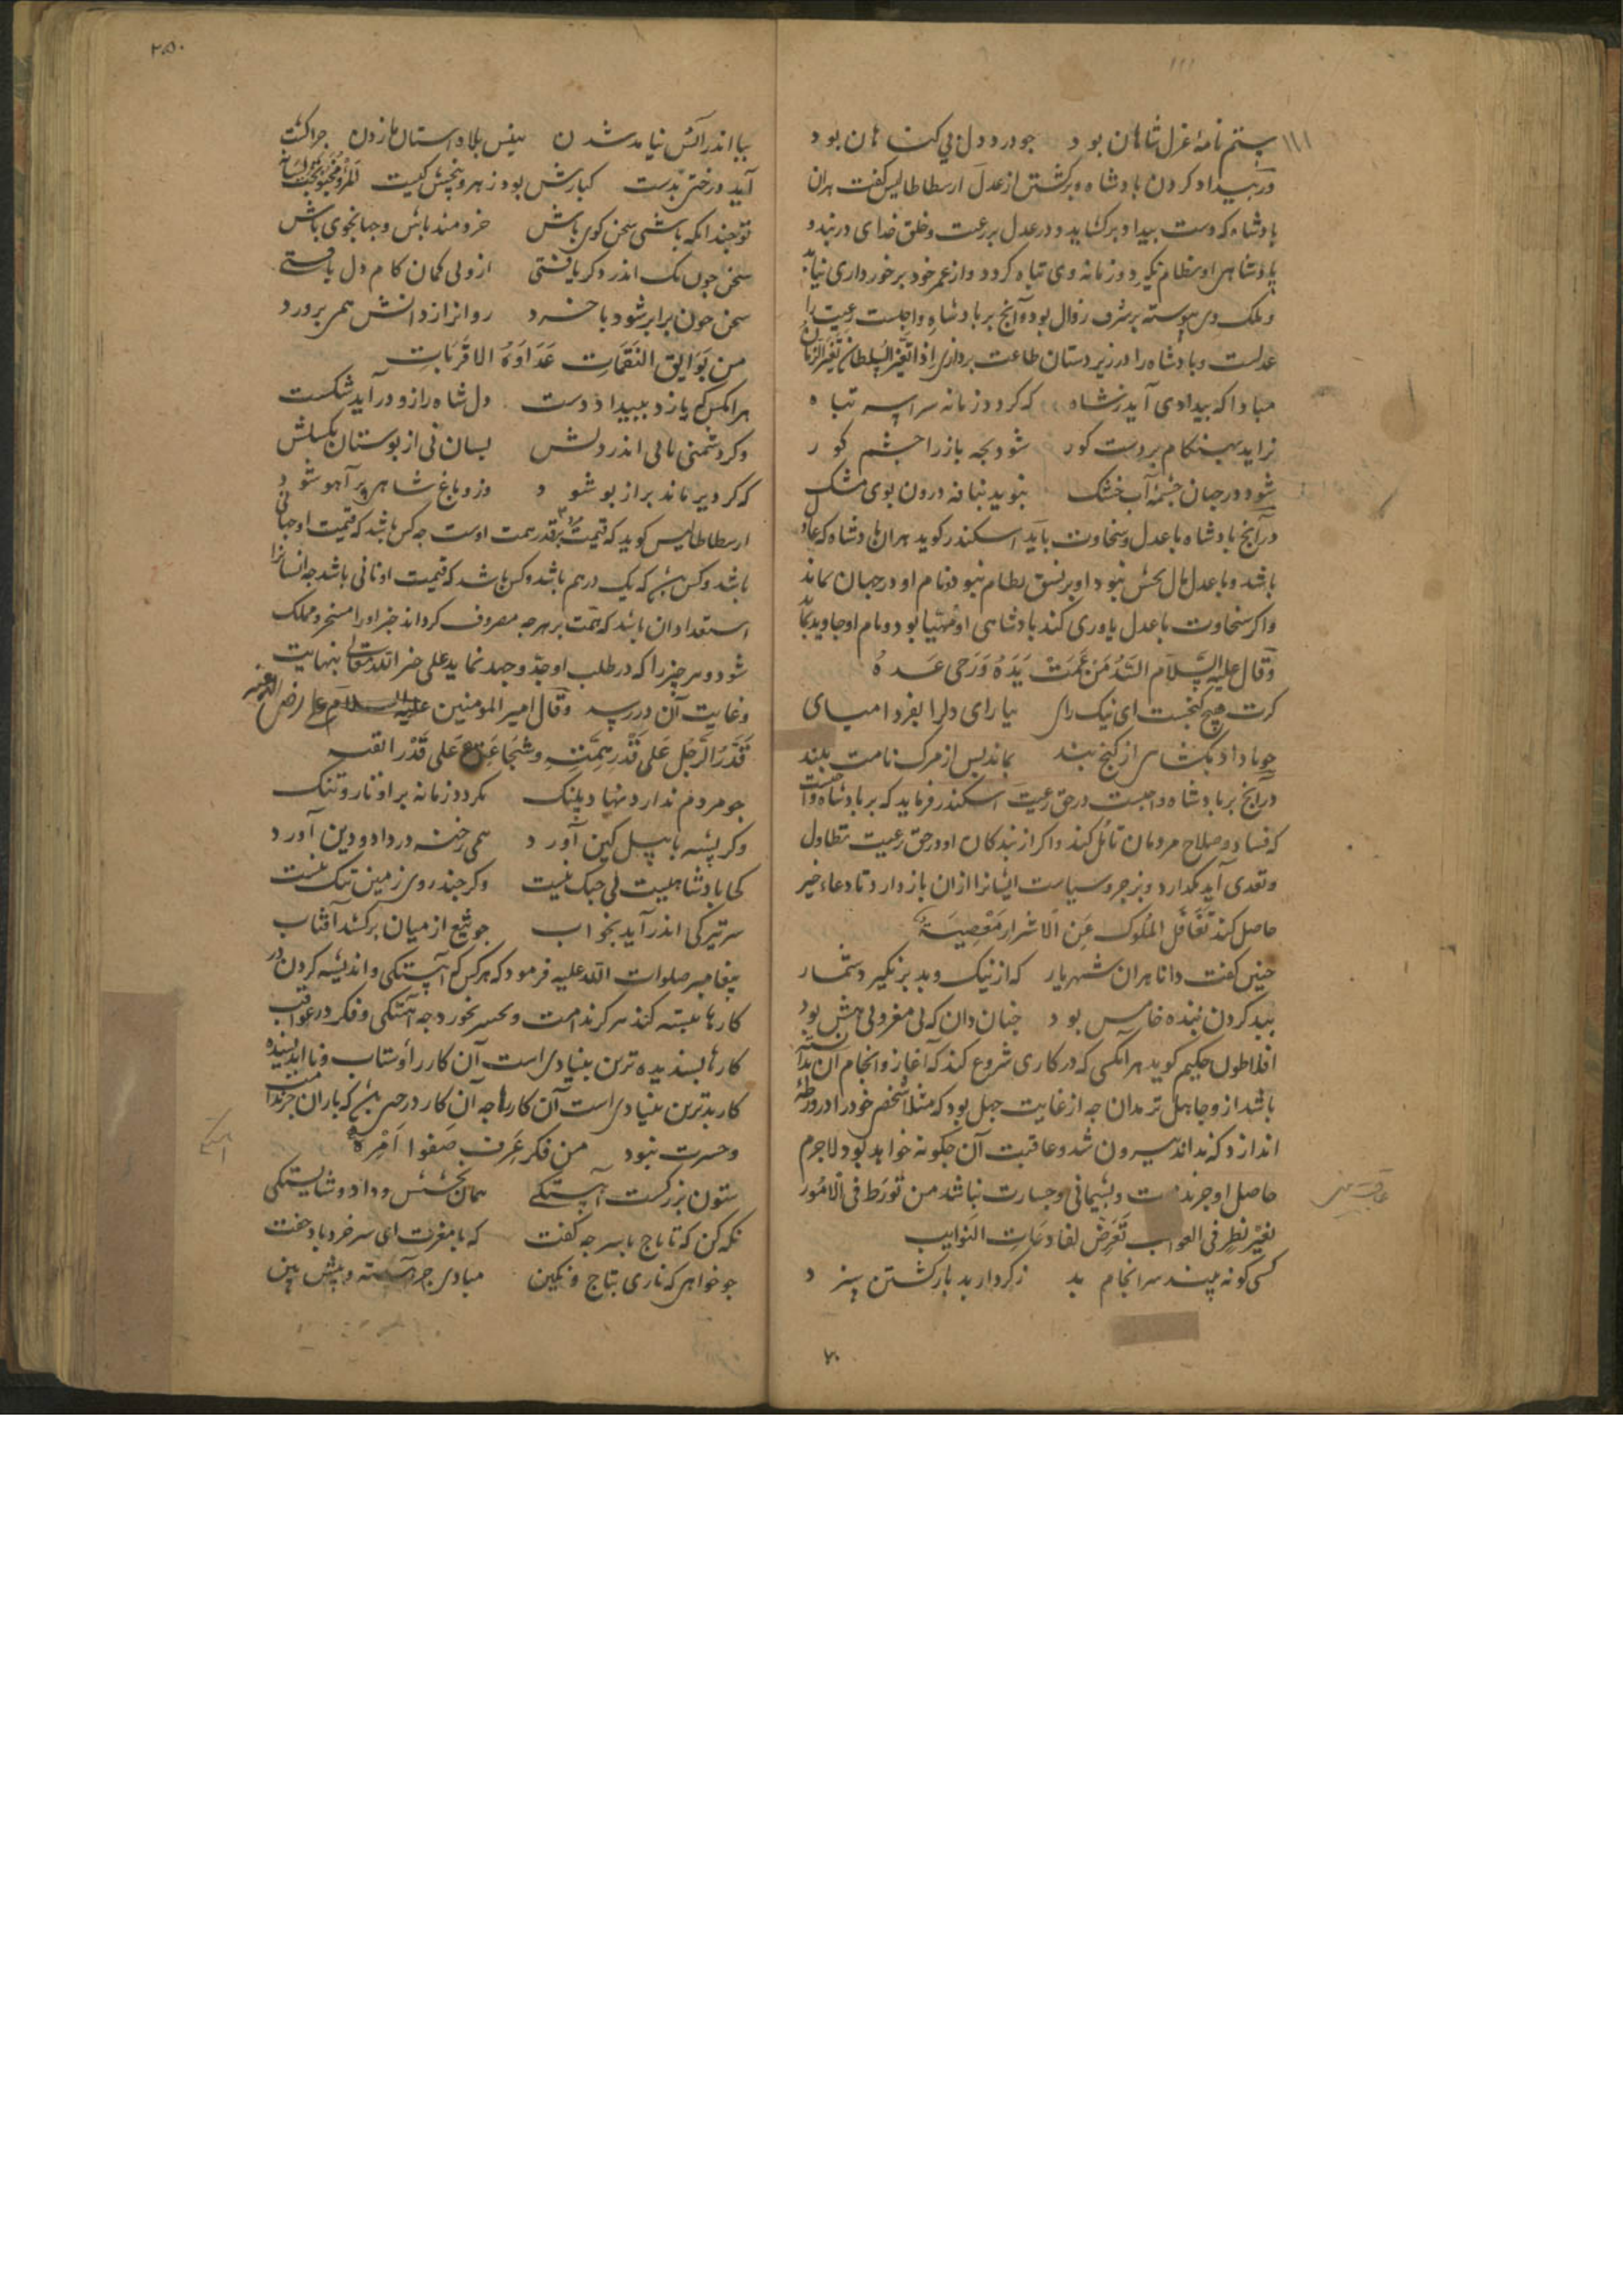 ۱۱۱
ستم نامهٔ عزل شاهان بود جو درد دل بی کناهان بود
در بیداد کردن بادشاه و برکشتن از عدل ارسطاطالیس کفت هران
بادشاه که دست بیداد برکشاید و در عدل بر رعیت و خلق خدای دربندد
بادشاهی او نظام نکیرد و زمانه وی تباه کردد و از عمر خود برخورداری نیابد
و ملک وی پیوسته بر شرف زوال بود و آنچ بر بادشاه واجبست رعیت را
عدلست و بادشاه را در زیردستان طاعت برداری اذا تغیر السلطان تغیر الزمان
مبادا که بیدادی آید ز شاه که کردد زمانه سراسر تباه
نزاید بهنکام بر دست کور شود بچه باز را چشم کور
شود در جهان چشمهٔ آب خشک نبوید بنافه درون بوی مشک
در آنچ بادشاه با عدل و سخاوت باید اسکندر کوید هران بادشاه که عادل
باشد و با عدل مال بخش نبود او بر نسق نظام نبود و نام او در جهان نماند
و اکر سخاوت با عدل یاوری کند بادشاهی او مهیا بود و نام او جاوید بماند
وقال علیه السلام السید من عمت یده ورجی غده
کرت هیچ کنجست ای نیک رای بیارای دل را بفردا میای
جو با داد بکشای از کنج بند بماند بس از مرک نامت بلند
در آنچ بر بادشاه واجبست در حق رعیت اسکندر فرماید که بر بادشاه واجبست
که فساد و صلاح مردمان تأمل کند و اکر از بندکان او در حق رعیت تطاول
و تعدی آید نکدارد و بزجر و سیاست ایشانرا ازان بازدارد تا دعاء خیر
حاصل کند تغافل الملوک عن الاشرار معصیة
جنین کفت دانا هران شهریار که از نیک و بد برنکیرد شمار
ببد کردن بنده خامش بود جنان دان که بی مغز و بی هش بود
افلاطون حکیم کوید هرآنکسی که در کاری شروع کند که آغاز و انجام آن ندانسته
باشد ازو جاهل تر مدان جه از غایت جهل بود که مثلا شخص خود را در ورطهٔ
اندازد که نداند بیرون شد و عاقبت آن جکونه خواهد بود لاجرم
حاصل او جز ندامت و بشیمانی و جسارت نباشد من تورط فی الامور
بغیر نظر فی العواقب تعرض لفادحات النوایب
کسی کو نه بیند سرانجام بد ز کردار بد بازکشتن سزد
عاقبت
۲۵۰
بباید ورختی بدست کبارش بود زهر و بیخش کبست
تو جندانکه باشی سخن کوی باش خردمند باش و جهانجوی باش
سخن جون یک اندر دکر بافتی ازو بی کمان کام دل یافتی
سخن جون برابر شود با خرد روانرا ز دانش همی برورد
من بوایق النقمات عداوة الاقربات
هر انکس که یازد ببیداد دست دل شاه را زو درآید شکست
وکر دشمنی یابی اندر دلش بسان نی از بوستان بکسلش
که کر دیر ماند بر از بو شود وزو باغ شاهی بر آهو شود
ارسطاطالیس کوید که قیمت مرد بر قدر همت اوست جه کس باشد که قیمت او جهانی
باشد و کس باشد که یک درهم باشد و کس باشد که قیمت او نانی باشد جه انسانرا
استعداد آن باشد که همت بر هرچه مصروف کرداند جز او را مسخر و مملک
شود و هرچیز را که در طلب او جد و جهد نماید علی خیر الله تعالی بنهایت
و غایت آن در رسد وقال امیر المومنین علیه السلام علی رضی الله عنه
قدر الرجل علی قدر همته و شجاعته علی قدر انفته
جو مردم ندارد نهاد پلنک نکردد زمانه بر او تار و تنک
وکر پشه با پیل کین آورد همی رخنه در داد و دین آورد
کجا بادشاهیست بی جنک نیست وکر جند روی زمین تنک نیست
سر تیرکی اندر آید بخواب جو تیغ از میان برکشد آفتاب
پیغامبر صلوات الله علیه فرمود که هر کس که آهستکی و اندیشه کردن در
کارها بیشه کند هرکز ندامت و تحسر نخورد جه آهستکی و فکر در عواقب
کارها بسندیده ترین بنیادی است آن کار را و شتاب و نااندیشیده
کار بدترین بنیادی است آن کارها جه آن کار در حیز باشد که بار آن جز ندامت
و حسرت نبود من فکر عرف صفوا امره
ستون بزرکیست آهستکی همان بخشش و داد و شایستکی
نکه کن که تا تاج با سر جه کفت که با مغزت ای سر خرد باد جفت
جو خواهی که نازی بتاج و نکین مبادی جز آهسته و پیش بین
۷۰